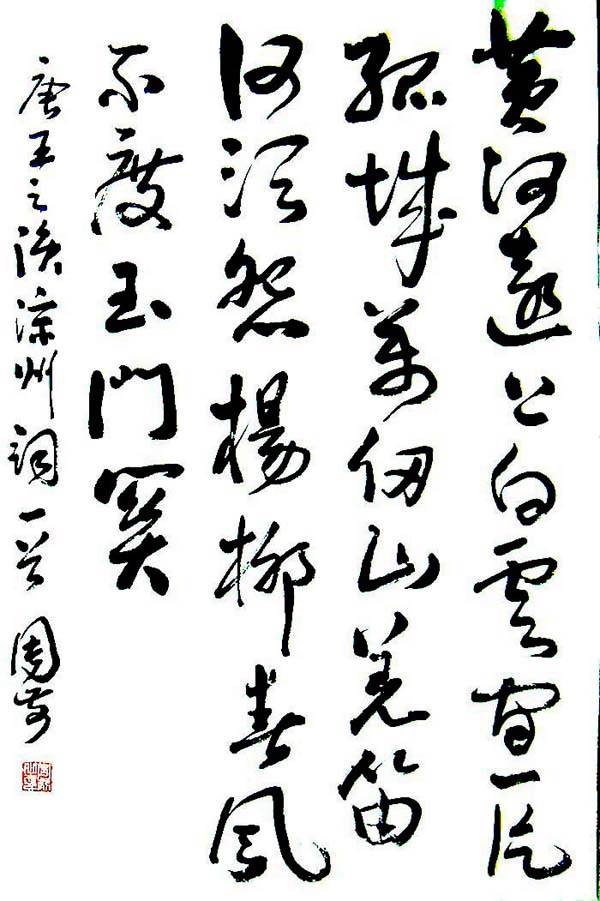 黄河遠上白雲間一片
孤城萬仞山羌笛
何須怨楊柳春風
不度玉門関
唐王之渙涼州詞一首 周